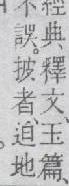 經典釋文、玉篇、
誤。披者、迫地